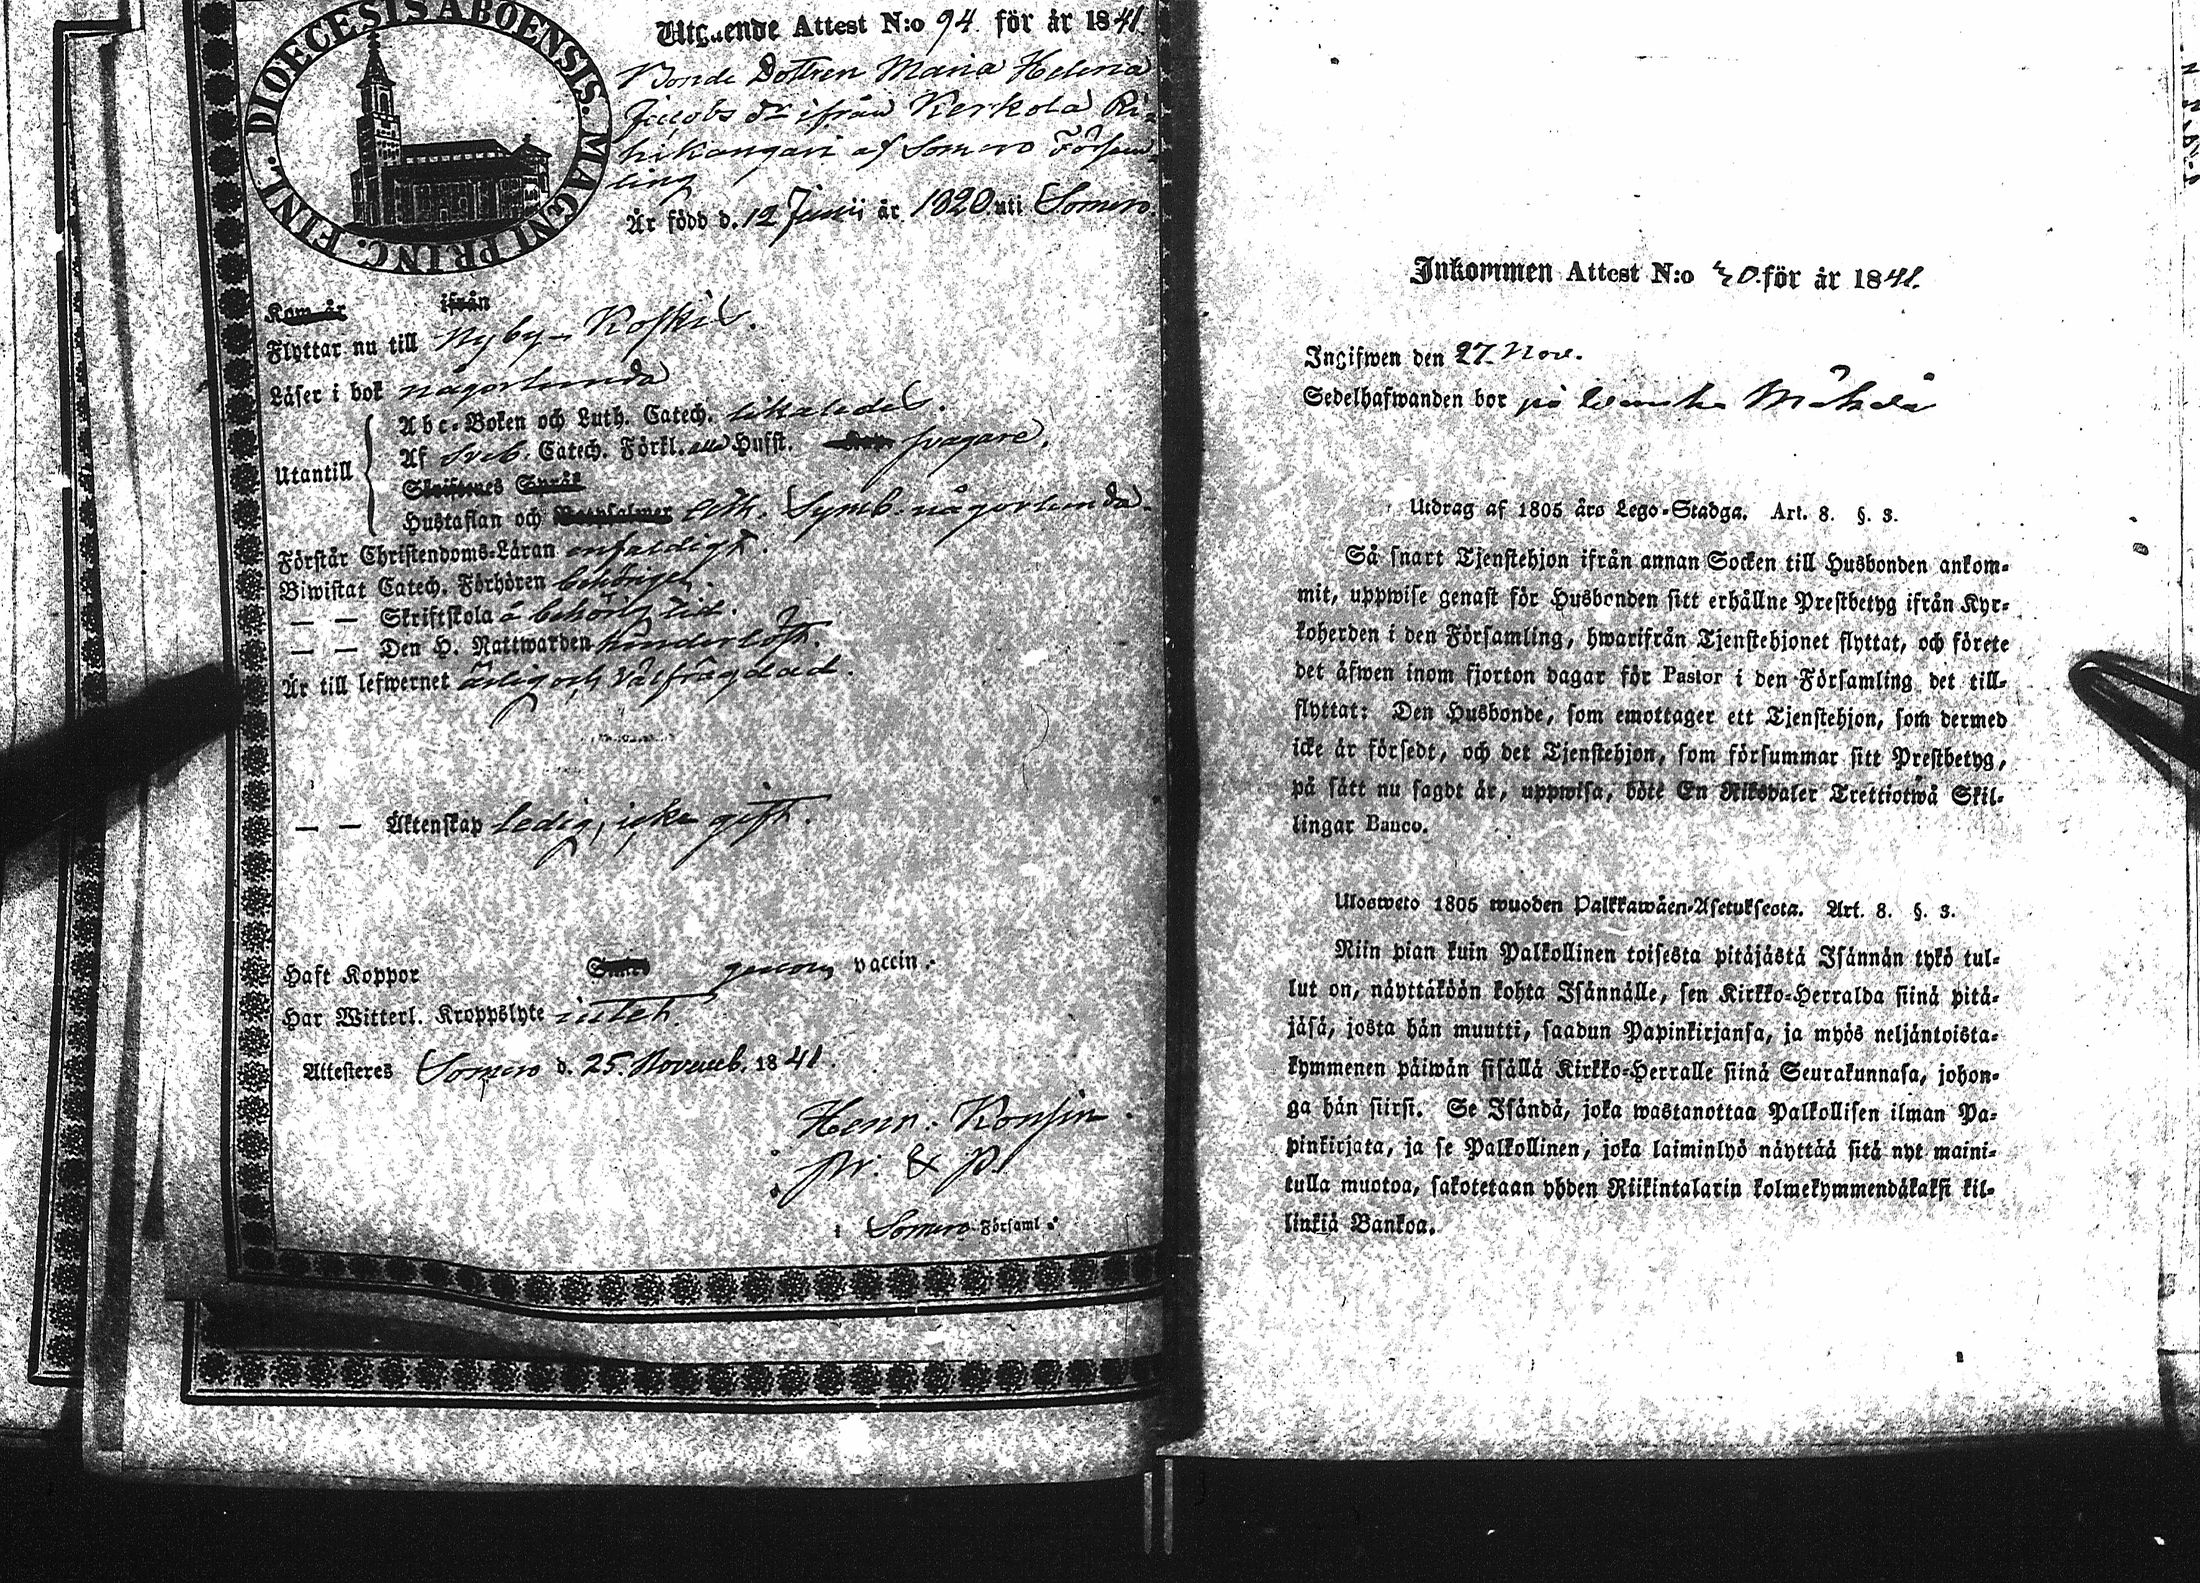 DIOECESIS ABOENSIS. MAGNI PRINC. FINL.
Utgående Attest N:o 94 för år 1841.
Bonde Dottren Maria Helena
Jacobs dr ifrån Kerkola Ri-
hikangari af Somero Försam-
ling
Är född d. 12 Junii år 1820 uti Somero.
Kom år ifrån
Flyttar nu till Nyby-Koskis.
Läser i bok någorlunda
Utantill
Abc-Boken och Luth. Catech. likaledes.
Af Sveb. Catech. Förkl. Husst. svagare.
Skriftenes Språk
Hustaflan och Botpsalmer Ath. Symb. någorlunda.
Förstår Christendoms-Läran enfaldigt.
Biwistat Catech. Förhören behörigen.
— — Skriftskola å behörig tid.
— — Den H. Nattwarden hinderlöst.
Är till lefwernet ärlig och välfrägdad.
— — Äktenskap ledig, icke gift.
Haft Koppor genom vaccin.
Har Witterl. Kroppslyte intet.
Attesteres Somero d. 25. Novemb. 1841.
Henr. Konsin
pr. & p.
i Somero Församl.
Inkommen Attest N:o 30 för år 1841.
Ingifwen den 27. Nov.
Sedelhafwanden bor på
Utdrag af 1805 års Lego-Stadga. Art. 8. §. 3.
Så snart Tjenstehjon ifrån annan Socken till Husbonden ankom-
mit, uppwise genast för Husbonden sitt erhållne Prestbetyg ifrån Kyr-
koherden i den Församling, hwarifrån Tjenstehjonet flyttat, och förete
det äfwen inom fjorton dagar för Pastor i den Församling det till-
flyttat: Den Husbonde, som emottager ett Tjenstehjon, som dermed
icke är försedt, och det Tjenstehjon, som försummar sitt Prestbetyg,
på sätt nu sagdt är, uppwisa, böte En Riksdaler Trettiotwå Skil-
lingar Banco.
Ulosweto 1805 wuoden Palkkawäen-Asetuksesta. Art. 8. §. 3.
Niin pian kuin Palkollinen toisesta pitäjästä Isännän tykö tul-
lut on, näyttäköön kohta Isännälle, sen Kirkko-Herralda siinä pitä-
jäsä, josta hän muutti, saadun Papinkirjansa, ja myös neljäntoista-
kymmenen päiwän sisällä Kirkko-Herralle siinä Seurakunnasa, johon-
ga hän siirsi. Se Isändä, joka wastanottaa Palkollisen ilman Pa-
pinkirjata, ja se Palkollinen, joka laiminlyö näyttää sitä nyt maini-
tulla muotoa, sakotetaan yhden Riikintalarin kolmekymmendäkaksi kil-
linkiä Bankoa.